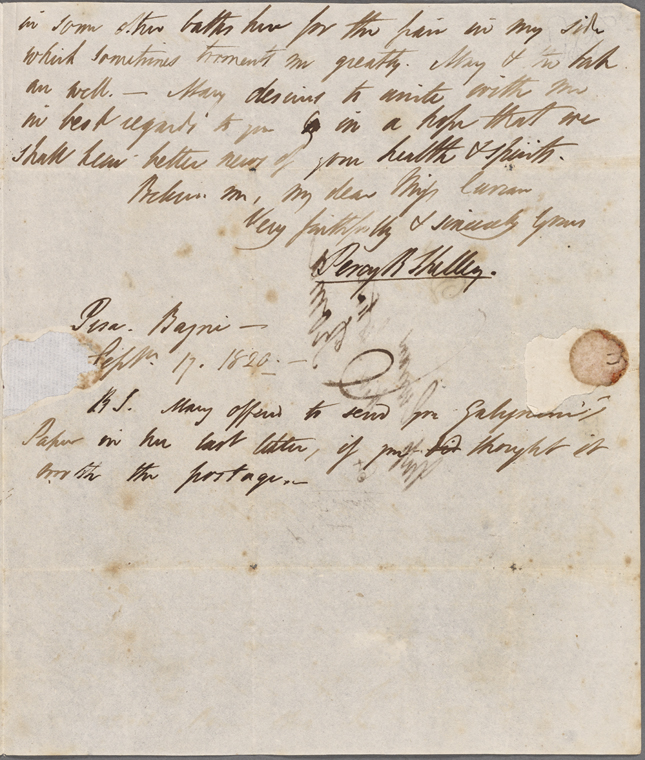 in some other baths here for the pain in my side
which sometimes torments me greatly. Mary & the babe
are well. — Mary desires to unite with me
in best regards to you & in a hope that we
shall hear better news of your health & spirits.
Believe me, my dear Miss Curran,
Very faithfully & sincerely Yours
Percy B Shelley.
Pisa. Bagni —
Septr. 17. 1820. —
P.S. Mary offered to send for Galignani's
Paper in her last letter, if you thought it
worth the postage. —